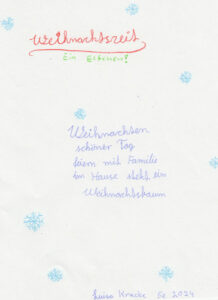 Weihnachtszeit
Ein Elfchen!
Weihnachten
schöner Tag
feiern mit Familie
Im Hause steht ein
Weihnachtsbaum
Luisa 5c 2024